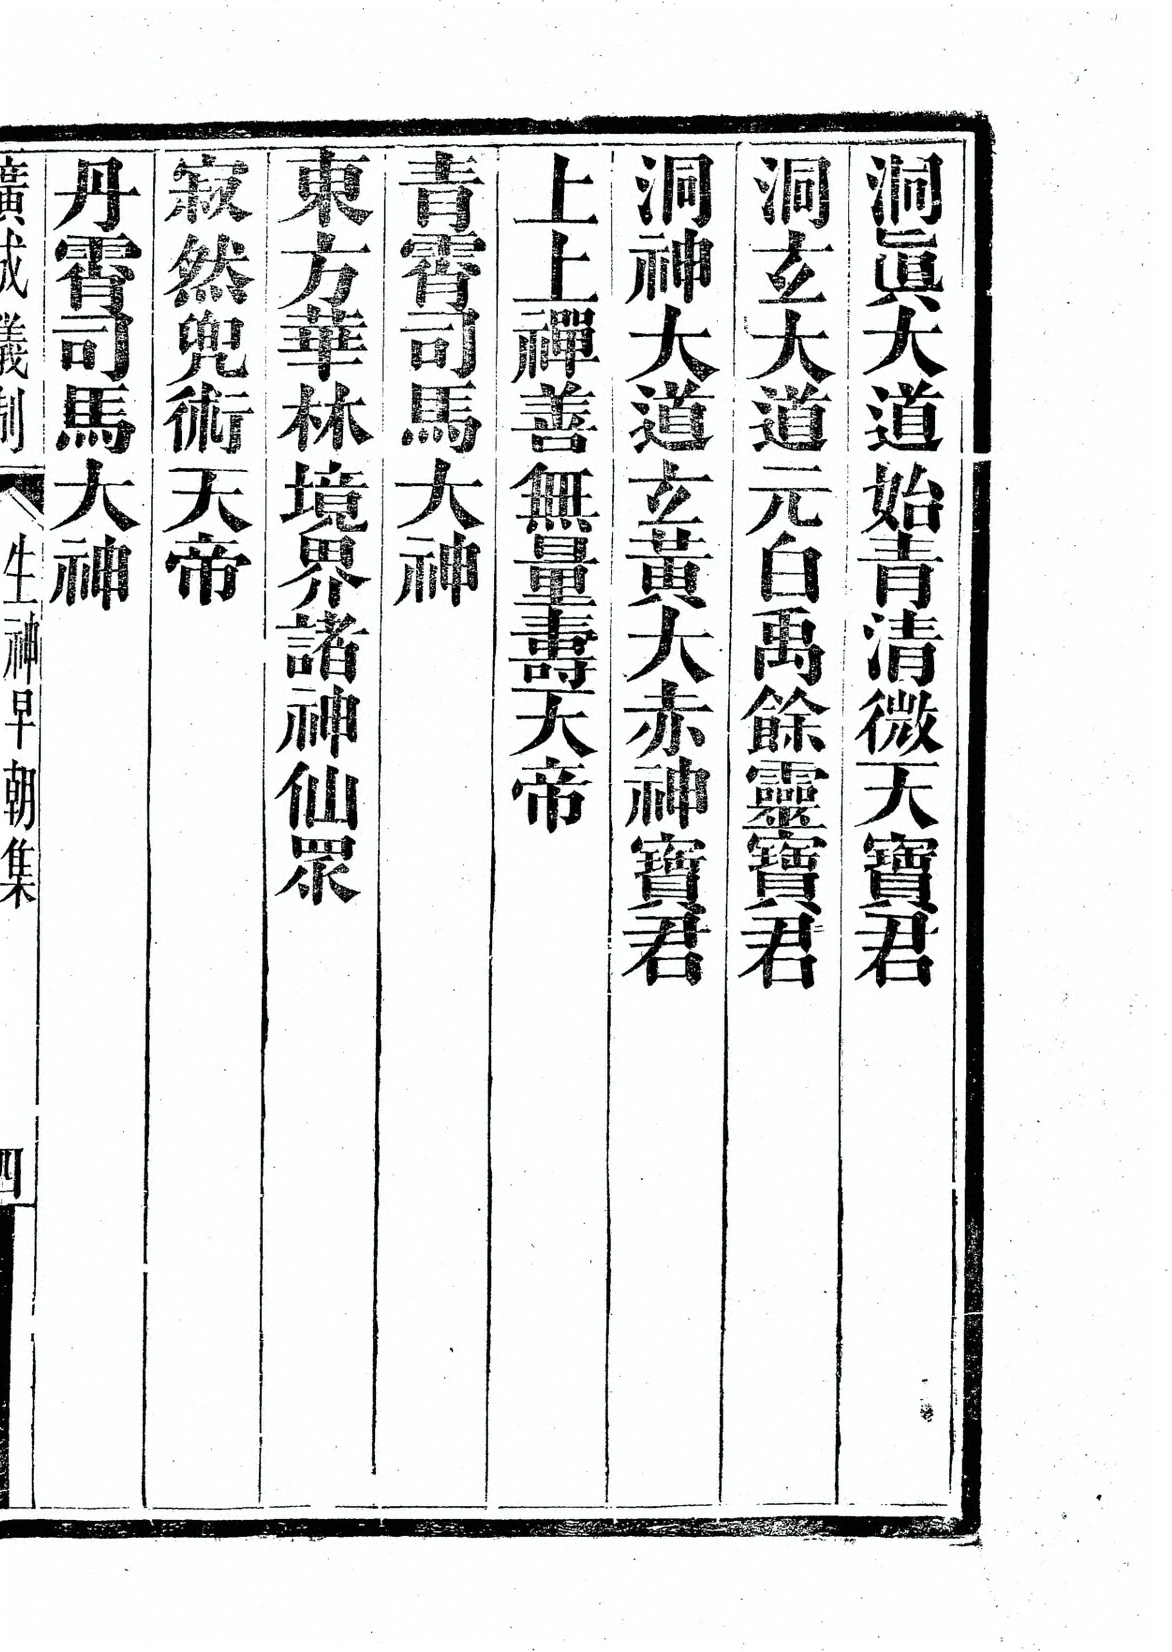 洞眞大道始青清微天寶君
洞玄大道元白禹餘靈寶君
洞神大道玄黃大赤神寶君
上上禪善無量壽天帝
青霄司馬大神
東方華林境界諸神仙眾
寂然兜術天帝
丹霄司馬大神
廣成儀制
生神早朝集
四